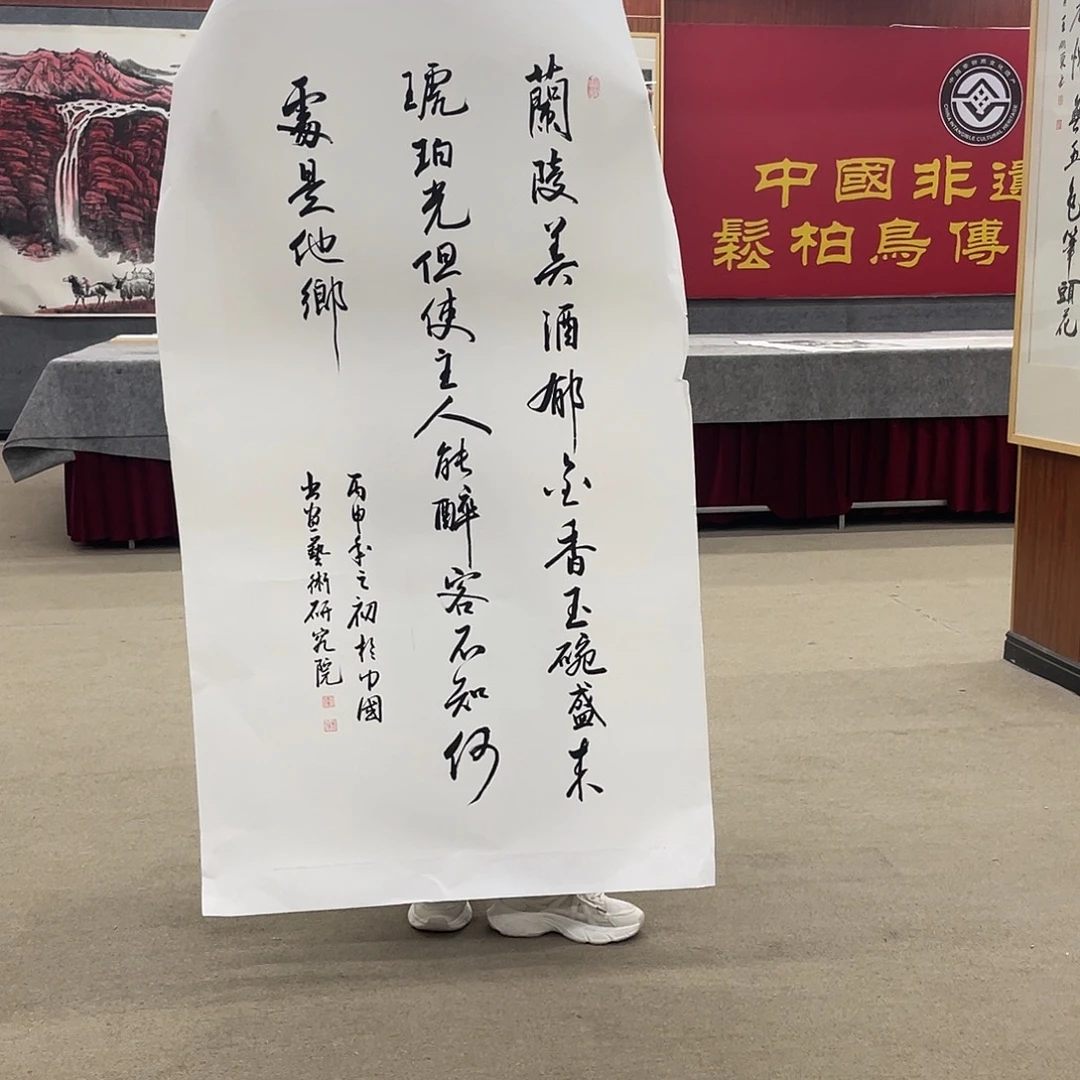 蘭陵美酒郁金香玉碗盛来
琥珀光但使主人能醉客不知何
處是他鄉
丙申年之初於中國
书画藝術研究院
中國非遺
鬆柏鳥傳
中国非物质文化遗产
CHINA INTANGIBLE CULTURAL HERITAGE
五色筆頭花